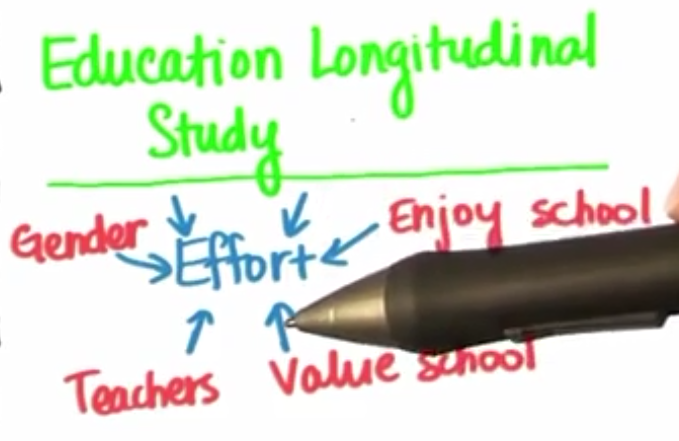 Education Longitudinal
Study
Gender
Enjoy school
Effort
Teachers
Value school